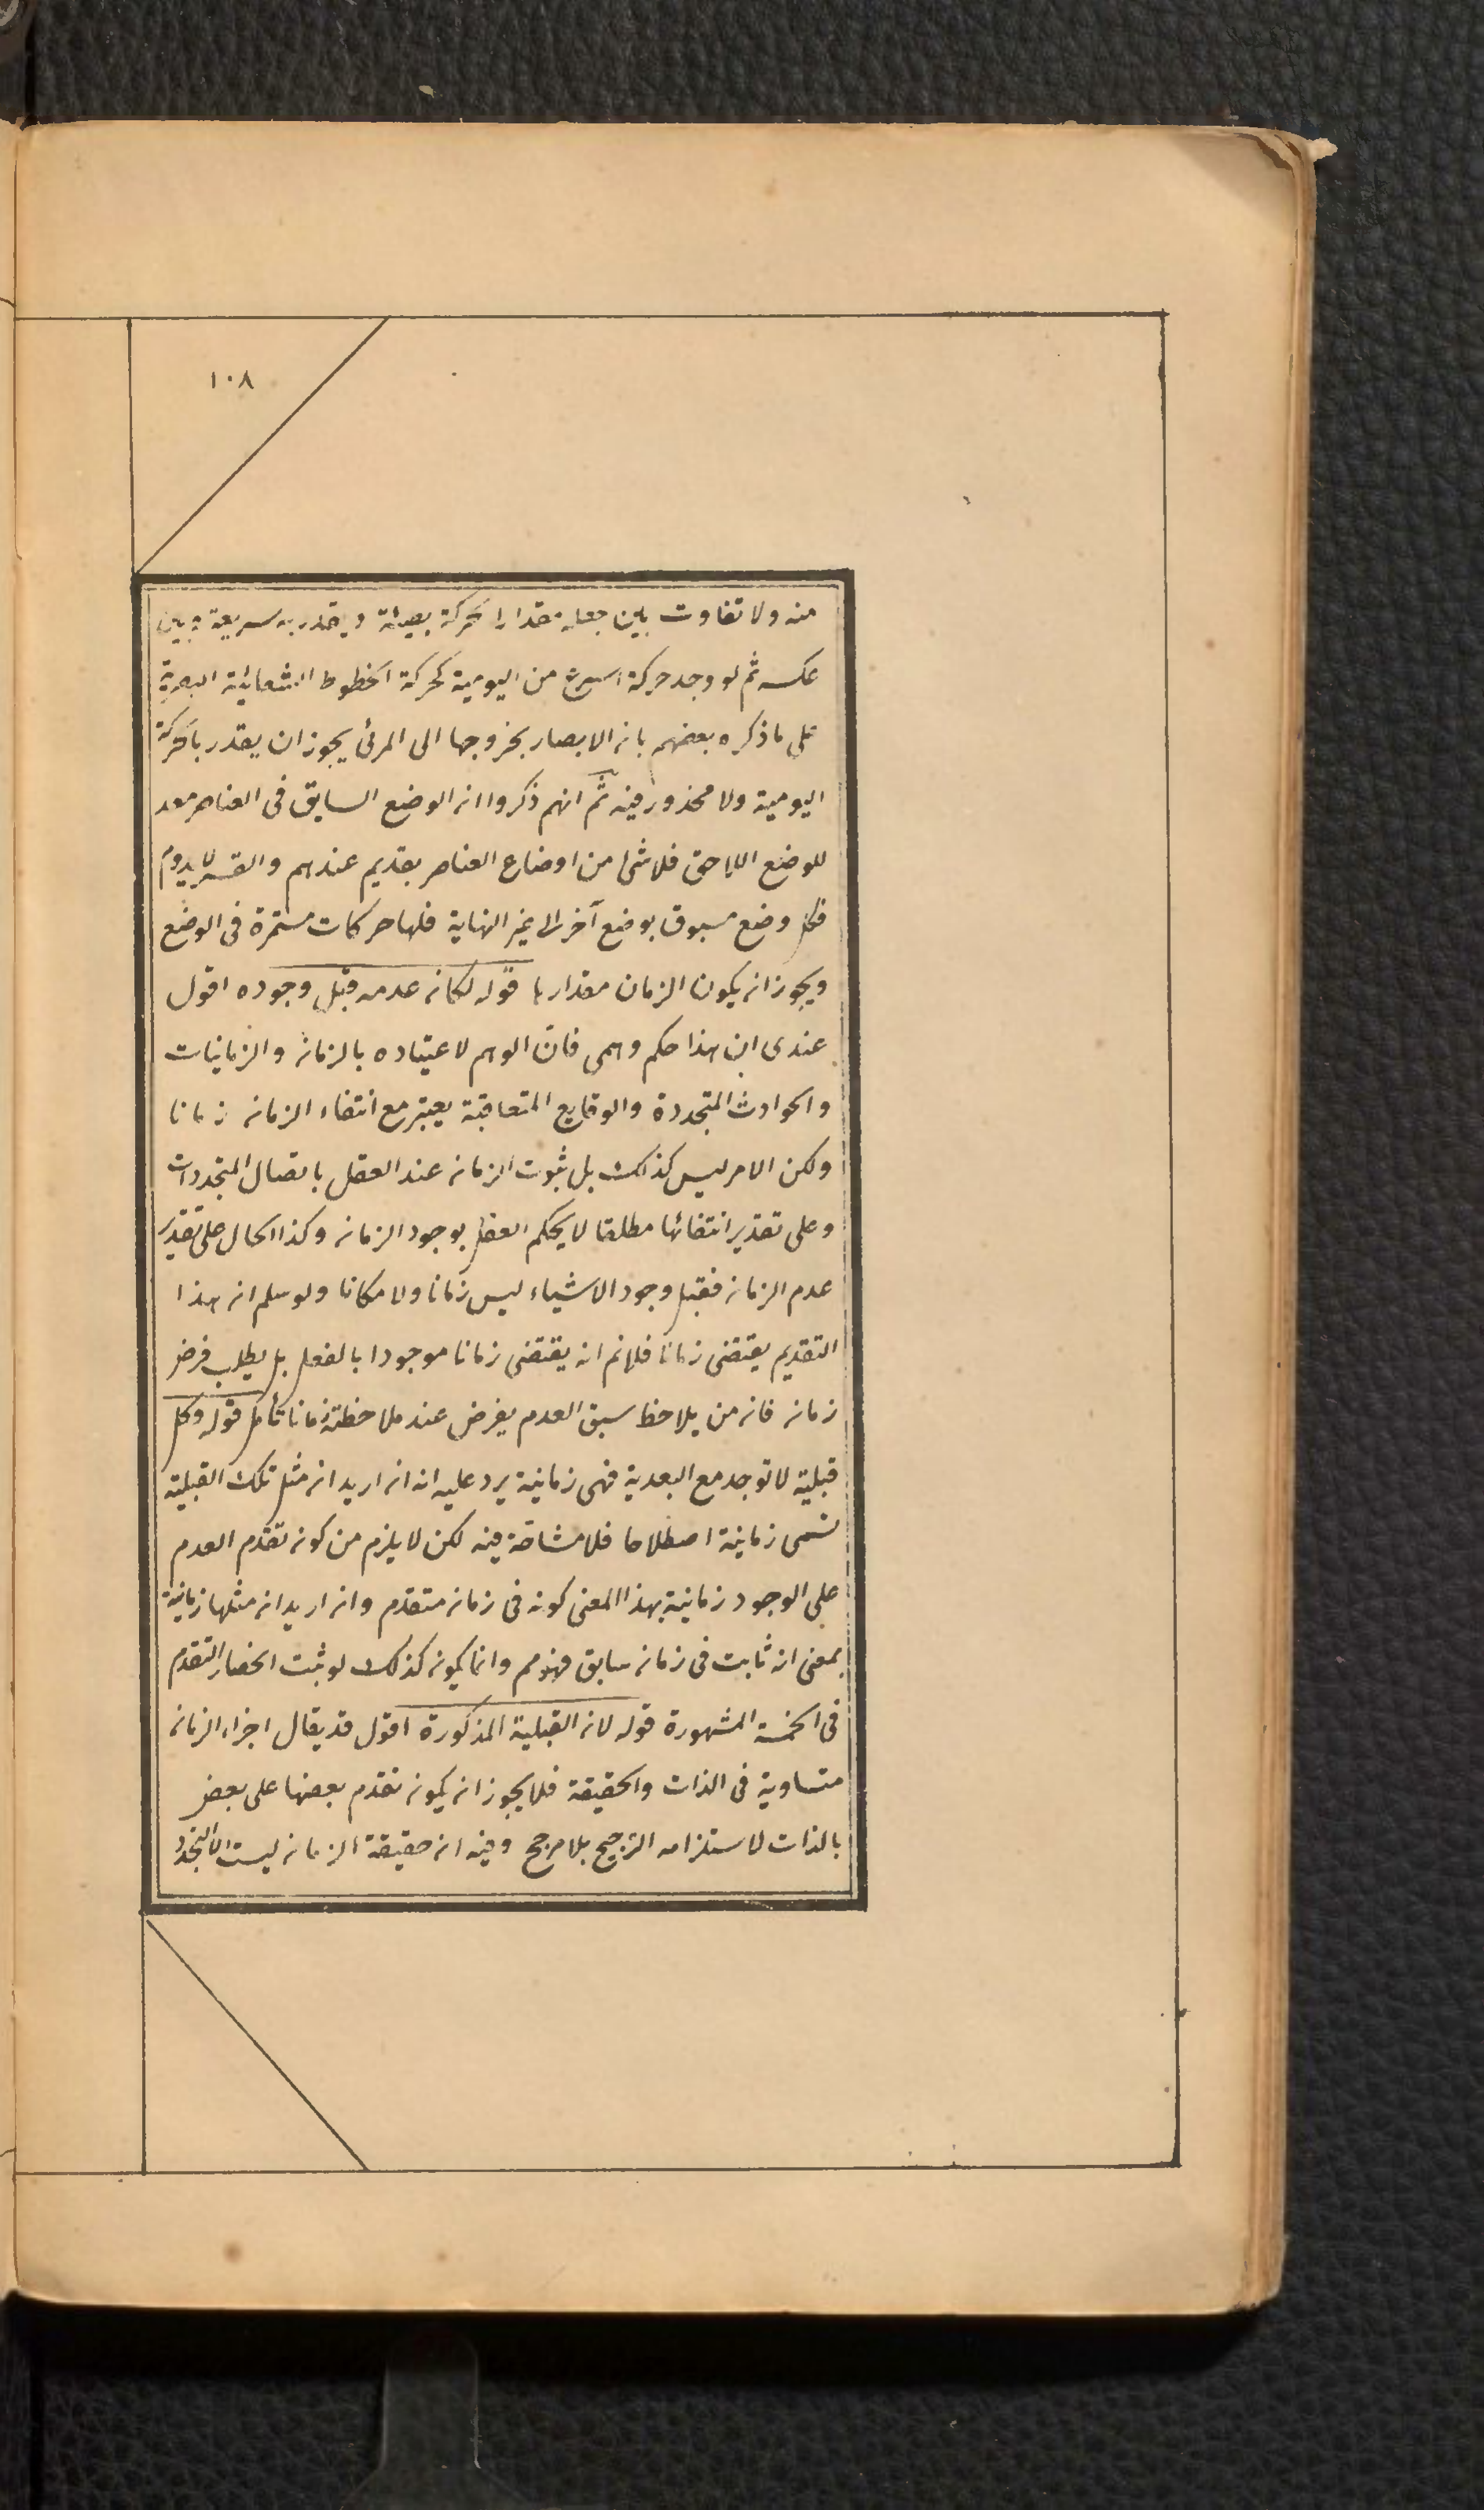 ١٠٨
منه ولا تفاوت بين جعله مقدارا لحركة بطيئة ويقدر به سريعة وبين
عكسه ثم لو وجد حركة اسرع من اليومية كحركة الخطوط الشعاعية البصرية
على ما ذكره بعضهم بان الابصار بخروجها الى المرئى يجوز ان يقدر بالحركة
اليومية ولا محذور فيه ثم انهم ذكروا ان الوضع السابق فى العناصر معد
للوضع اللاحق فلا شئ من اوضاع العناصر بقديم عندهم والقسر لا يدوم
فكل وضع مسبوق بوضع آخر الى غير النهاية فلها حركات مستمرة فى الوضع
ويجوز ان يكون الزمان مقدارها قوله لكان عدمه قبل وجوده اقول
عندى ان هذا حكم وهمى فان الوهم لاعتياده بالزمان والزمانيات
والحوادث المتجددة والوقايع المتعاقبة يعتبر مع انتفاء الزمان زمانا
ولكن الامر ليس كذلك بل ثبوت الزمان عند العقل باتصال المتجددات
وعلى تقدير انتفائها مطلقا لا يحكم العقل بوجود الزمان وكذا الحال على تقدير
عدم الزمان فقبل وجود الاشياء ليس زمانا ولا مكانا ولو سلم ان هذا
التقديم يقتضى زمانا فلانم انه يقتضى زمانا موجودا بالفعل بل يطلب فرض
زمان فان من يلاحظ سبق العدم يفرض عند ملاحظته زمانا تأمل قوله وكل
قبلية لا توجد مع البعدية فهى زمانية يرد عليه انه ان اريد ان مثل تلك القبلية
تسمى زمانية اصطلاحا فلا مشاحة فيه لكن لا يلزم من كون تقدم العدم
على الوجود زمانية بهذا المعنى كونه فى زمان متقدم وان اريد ان مثلها زمانية
بمعنى انه ثابت فى زمان سابق فهو مم وانما يكون كذلك لو ثبت انحصار التقدم
فى الخمسة المشهورة قوله لان القبلية المذكورة اقول قد يقال اجزاء الزمان
متساوية فى الذات والحقيقة فلا يجوز ان يكون تقدم بعضها على بعض
بالذات لاستلزامه الترجيح بلا مرجح وفيه ان حقيقة الزمان ليست الا التجدد